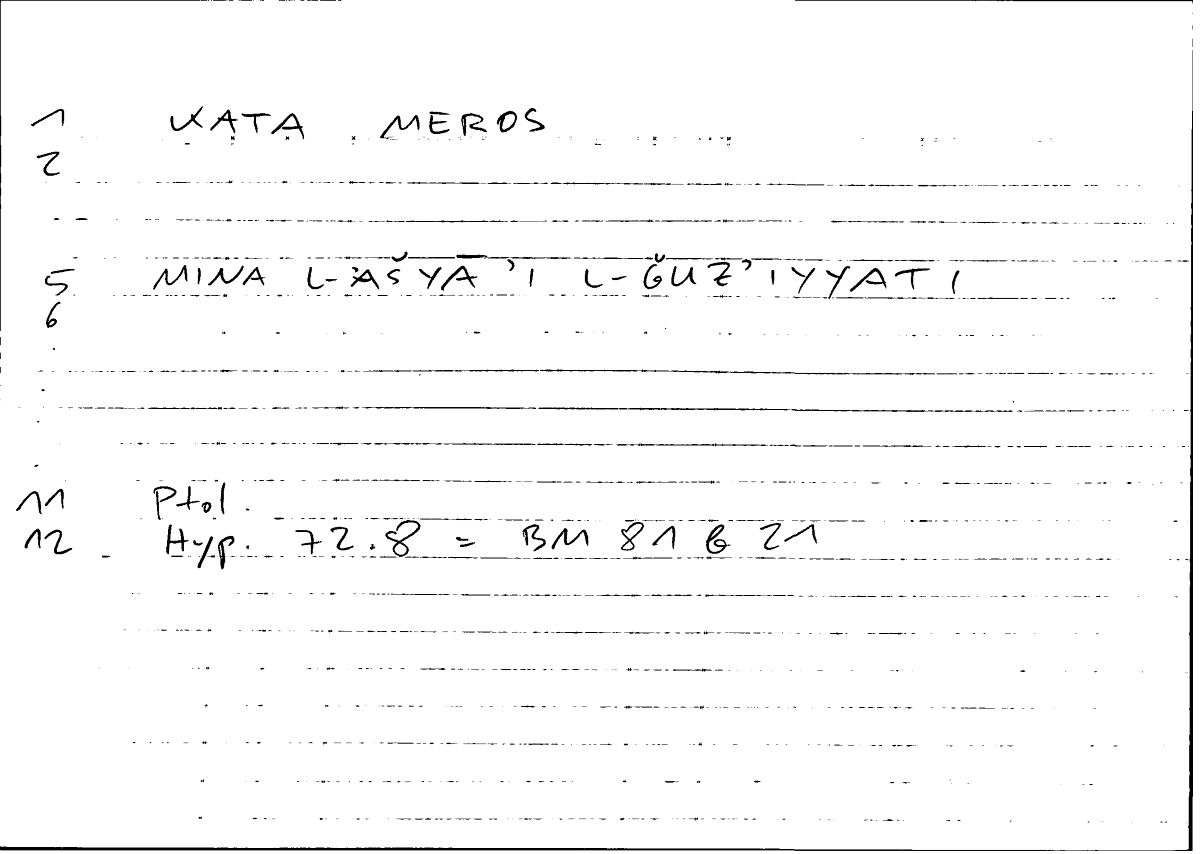 1 KATA MEROS
2
5 MINA L-AŠYĀ'I L-ǦUZ'IYYATI
6
11 Ptol.
12 Hyp. 72.8 = BM 81 b 21